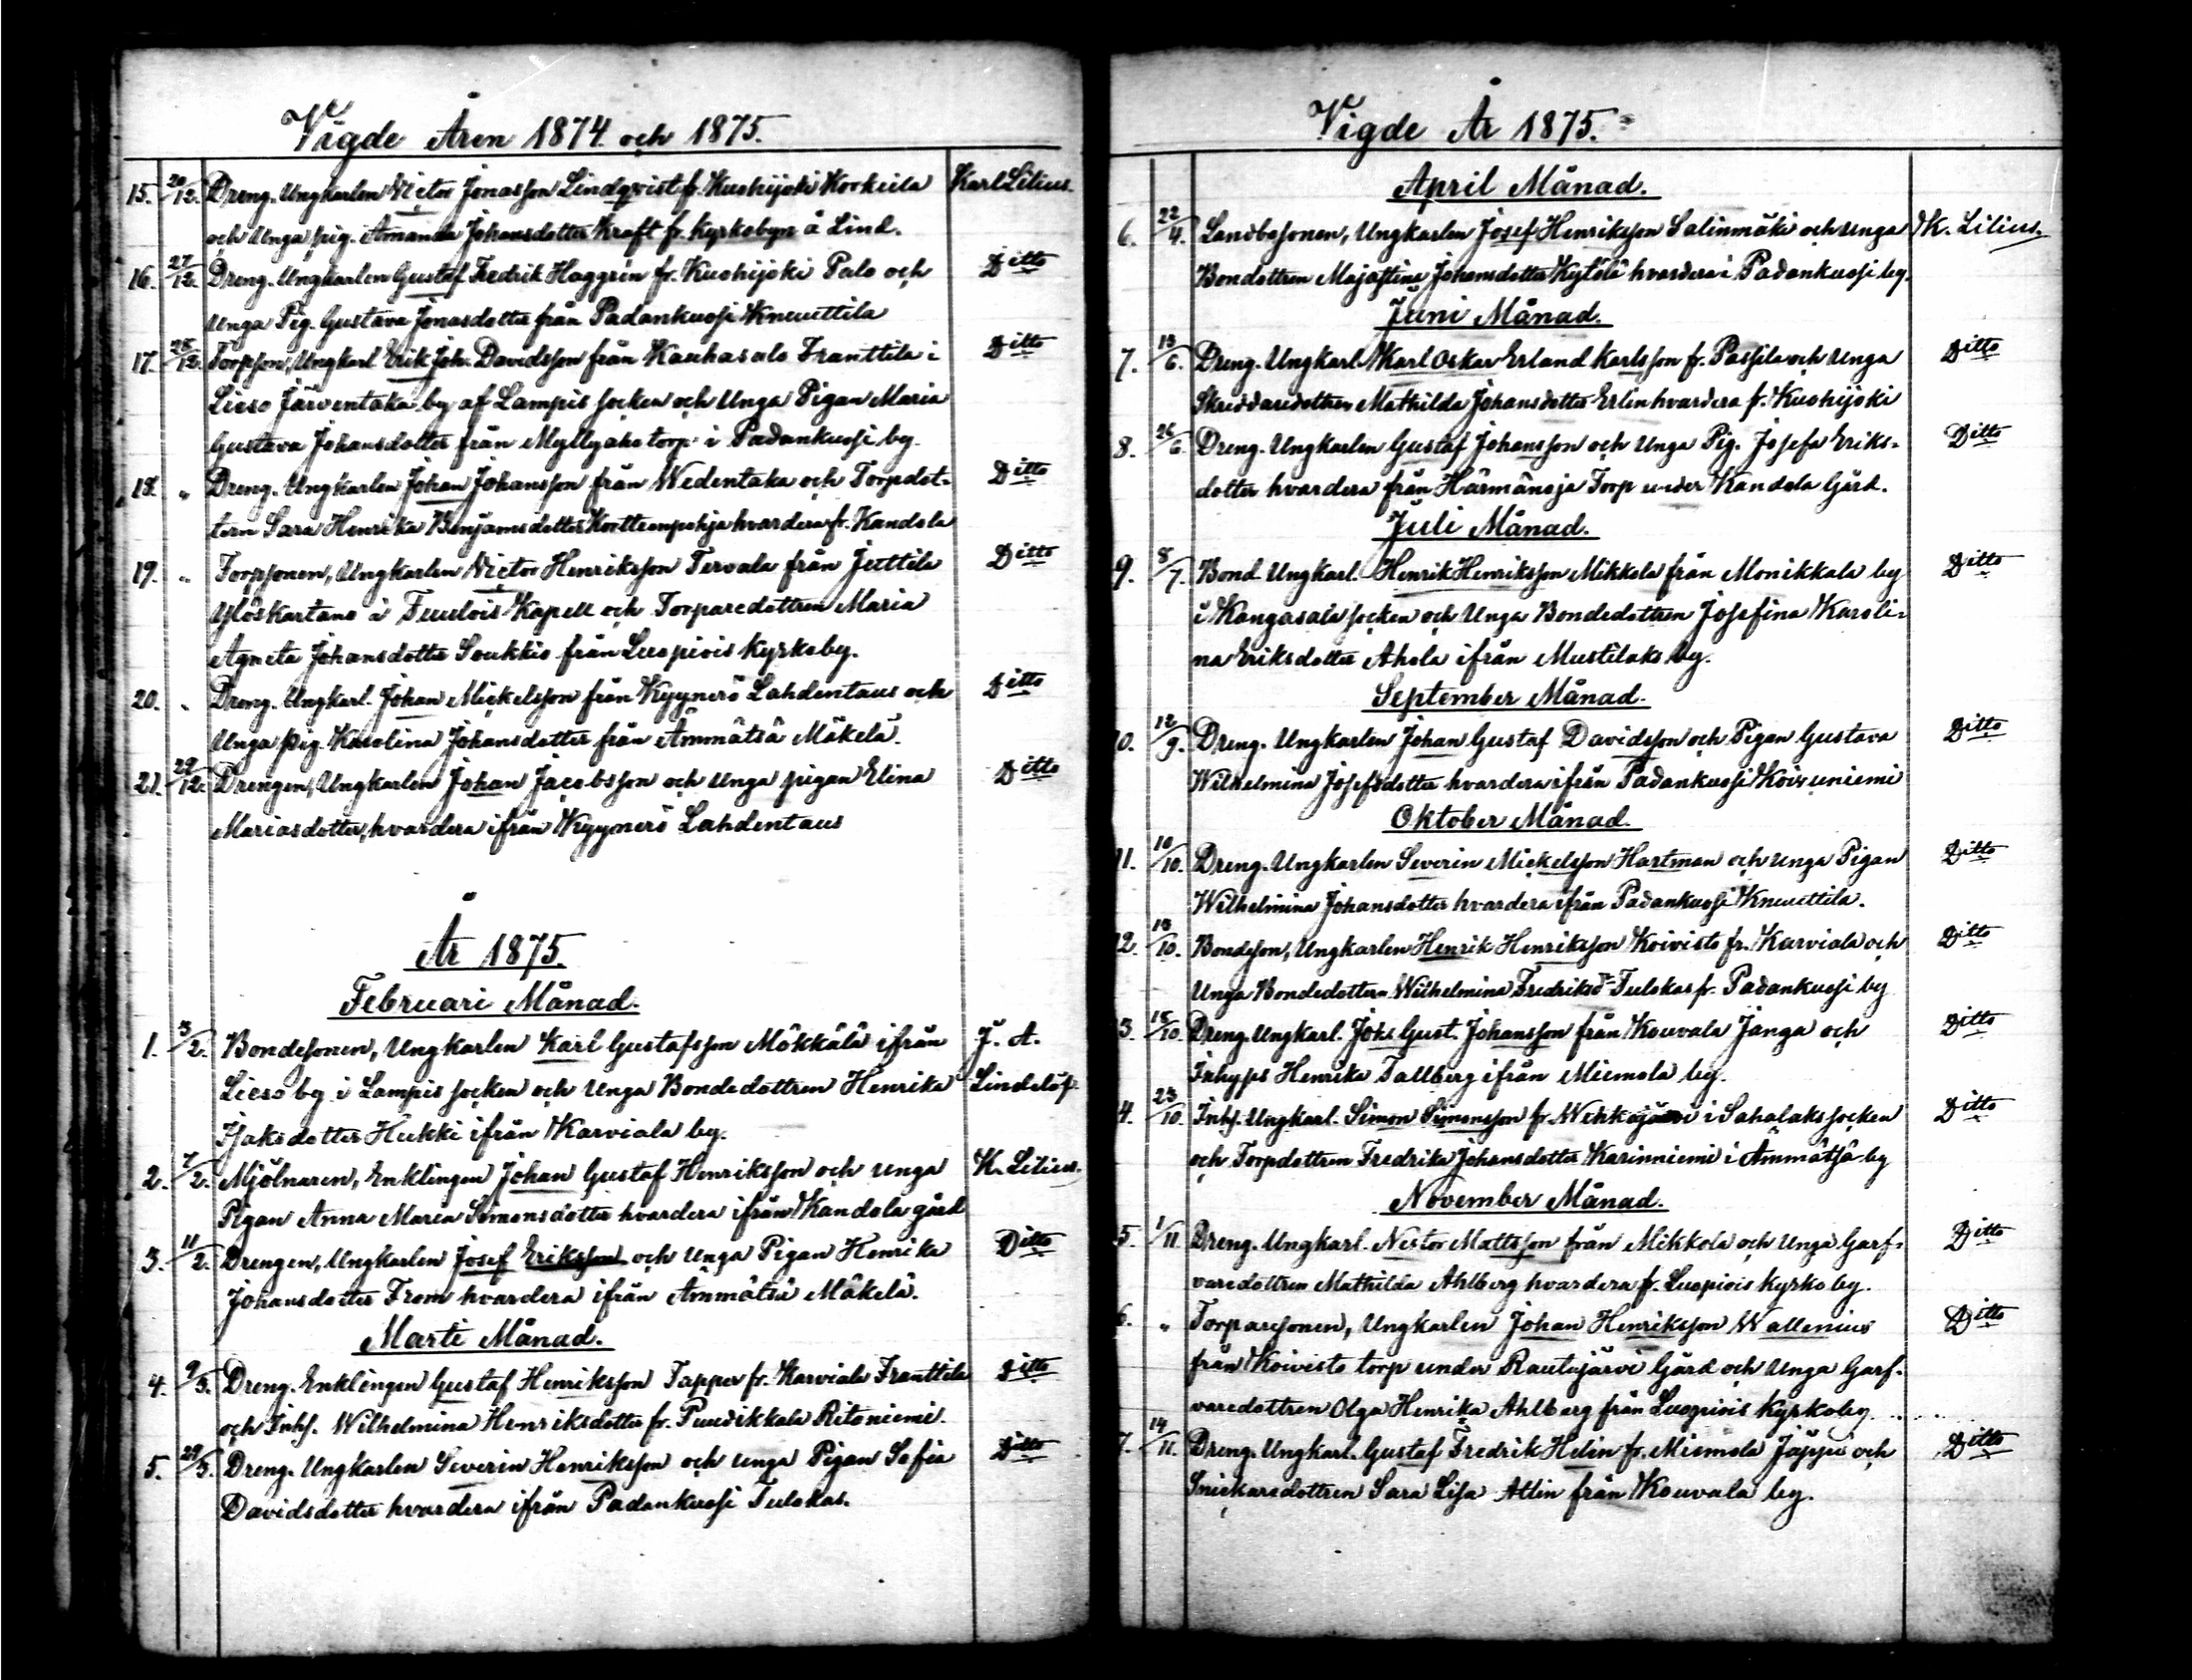 Vigde Åren 1874 och 1875.
15. 20/12. Dreng. Ungkarlen Victor Jonasson Lindqvist fr. Kuohijoki Korkeila Karl Lilius.
och Unga pig. Amanda Johansdotter Kraft fr. Kyrkobyn å Lind.
16. 27/12. Dreng. Ungkarlen Gustaf Fredrik Haggrén fr. Kuohijoki Palo och Ditto
Unga Pig. Gustava Jonasdotter från Padankuosi Knuuttila
17. 28/12. Torpson, Ungkarl Erik Joh. Davidsson från Kauhasalo Franttila i Ditto
Lieso Järventaka by af Lampis socken och Unga Pigan Maria
Gustava Johansdotter från Myllyaho torp i Padankuosi by.
18. " Dreng. Ungkarlen Johan Johansson från Wedentaka och Torpdot- Ditto
tern Sara Henrika Benjamsdotter Korttempohja hvardera fr. Kandola
19. " Torpsonen, Ungkarlen Victor Henriksson Tervala från Juttila Ditto
Ylöskartano i Tuulois Kapell och Torparedottren Maria
Agneta Johansdotter Soukkio från Luopiois Kyrkoby.
20. " Dreng. Ungkarl. Johan Mickelsson från Kyynerö Lahdentaus och Ditto
Unga pig. Karolina Johansdotter från Ämmätsä Mäkelä.
21. 29/12. Drengen, Ungkarlen Johan Jacobsson och Unga pigan Elina Ditto
Mariasdotter, hvardera ifrån Kyynerö Lahdentaus
År 1875.
Februari Månad.
1. 3/2. Bondesonen, Ungkarlen Karl Gustafsson Mökkälä ifrån J. A.
Lieso by i Lampis socken och Unga Bondedottren Henrika Lindelöf.
Isaksdotter Hukki ifrån Karviala by.
2. 7/2. Mjölnaren, Enklingen Johan Gustaf Henriksson och Unga K. Lilius.
Pigan Anna Maria Simonsdotter hvardera ifrån Kandola gård
3. 11/2. Drengen, Ungkarlen Josef Eriksson och Unga Pigan Henrika Ditto
Johansdotter From hvardera ifrån Ämmätsä Mäkelä.
Marti Månad.
4. 9/3. Dreng. Enklingen Gustaf Henriksson Tapper fr. Karviala Franttila Ditto
och Inhs. Wilhelmina Henriksdotter fr. Puudikkala Ritoniemi.
5. 29/3. Dreng. Ungkarlen Severin Henriksson och unga Pigan Sofia Ditto
Davidsdotter hvardera ifrån Padankuosi Tulokas.
Vigde År 1875.
April Månad.
6. 22/4. Landbosonen, Ungkarlen Josef Henriksson Salinmäki och unga K. Lilius.
Bondottren Majastina Johansdotter Kylölä hvardera i Padankuosi by.
Juni Månad.
7. 13/6. Dreng. Ungkarl. Karl Oskar Erland Karlsson fr. Passila och Unga Ditto
Skreddaredottren Mathilda Johansdotter Erlin hvardera fr. Kuohijoki
8. 26/6. Dreng. Ungkarlen Gustaf Johansson och Unga Pig. Josefa Eriks- Ditto
dotter hvardera från Härmänoja Torp under Kandola Gård.
Juli Månad.
9. 8/7. Bond. Ungkarl. Henrik Henriksson Mikkola från Monikkala by Ditto
i Kangasala socken och Unga Bondedottren Josefina Karoli-
na Eriksdotter Ahola ifrån Mustilaks by.
September Månad.
0. 12/9. Dreng. Ungkarlen Johan Gustaf Davidsson och Pigan Gustava Ditto
Wilhelmina Josefsdotter hvardera ifrån Padankuosi Koivuniemi
Oktober Månad.
11. 10/10. Dreng. Ungkarlen Severin Mickelsson Hartman och unga Pigan Ditto
Wilhelmina Johansdotter hvardera ifrån Padankuosi Knuuttila.
12. 15/10. Bondeson, Ungkarlen Henrik Henriksson Koivisto fr. Karviala och Ditto
Unga Bondedottern Wilhelmina Fredriksdr Tulokas fr. Padankuosi by
3. 15/10. Dreng. Ungkarl. Johs Gust. Johansson från Kouvala Janga och Ditto
Inhyps Henrika Tallberg ifrån Miemola by.
4. 23/10. Inhs. Ungkarl. Simon Simonsson fr. Wehkajärvi i Sahalaks socken Ditto
och Torpdottren Fredrika Johansdotter Karinniemi i Ämmätsä by
November Månad.
5. 1/11. Dreng. Ungkarl. Nestor Mattsson från Mikkola och Unga Garf- Ditto
varedottren Mathilda Ahlberg hvardera fr. Luopiois Kyrko by.
6. " Torparsonen, Ungkarlen Johan Henriksson Wallenius Ditto
från Koivisto torp under Rautajärvi Gård och Unga Garf-
varedottren Olga Henrika Ahlberg från Luopiois Kyrkoby.
7. 14/11. Dreng. Ungkarl. Gustaf Fredrik Helin fr. Miemola Jäppi och Ditto
Snickaredottren Sara Lisa Atlin från Kouvala by.